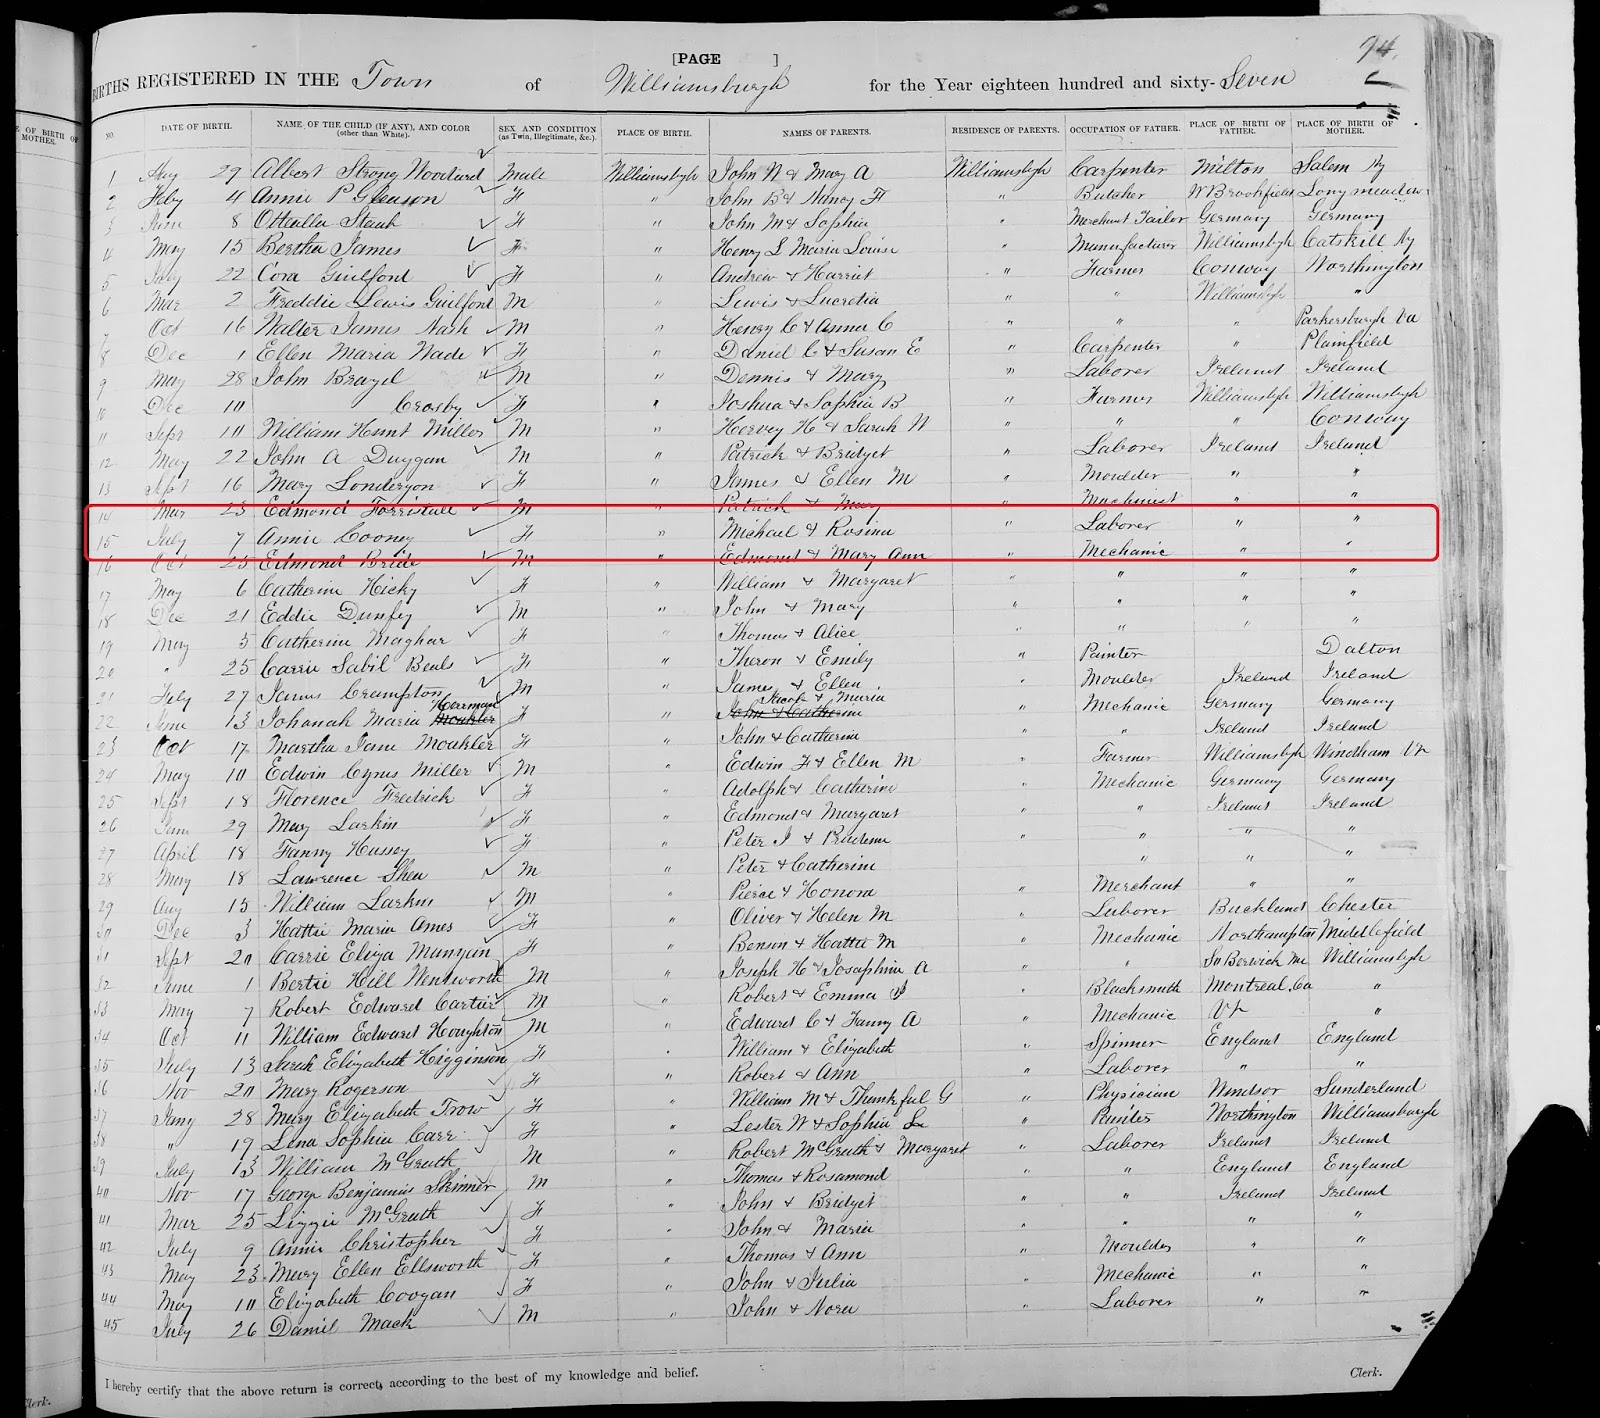 [PAGE ]
74
BIRTHS REGISTERED IN THE Town of Williamsburgh for the Year eighteen hundred and sixty-Seven
E OF BIRTH OF MOTHER.
NO. DATE OF BIRTH. NAME OF THE CHILD (IF ANY), AND COLOR (other than White). SEX AND CONDITION (as Twin, Illegitimate, &c.). PLACE OF BIRTH. NAMES OF PARENTS. RESIDENCE OF PARENTS. OCCUPATION OF FATHER. PLACE OF BIRTH OF FATHER. PLACE OF BIRTH OF MOTHER.
1 Aug 29 Albert Strong Woodard Male Williamsbgh John N & Mary A Williamsbgh Carpenter Milton Salem Ny
2 Feby 4 Annie P Gleason F " John B & Nancy F " Butcher W Brookfield Longmeadow
3 June 8 Ottealla Staab F " John M & Sophia " Merchant Tailor Germany Germany
4 May 15 Bertha James F " Henry L Maria Louise " Manufacturer Williamsbgh Catskill Ny
5 July 22 Cora Guilford F " Andrew & Harriet " Farmer Conway Northington
6 Mar 2 Freddie Lewis Guilford M " Lewis & Lucretia " " Williamsbgh "
7 Oct 16 Walter James Nash M " Henry C & Anna C " " " Parkersburgh Va
8 Dec 1 Ellen Maria Wade F " Daniel C & Susan E " Carpenter " Plainfield
9 May 28 John Brazel M " Dennis & Mary " Laborer Ireland Ireland
10 Dec 10 Crosby F " Joshua & Sophia B " Farmer Williamsbgh Williamsbgh
11 Sept 10 William Hunt Miller M " Hervey H & Sarah W " " " Conway
12 May 22 John A Duggan M " Patrick & Bridget " Laborer Ireland Ireland
13 Sept 16 Mary Londergon F " James & Ellen M " Moulder " "
14 Mar 23 Edmond Forristall M " Patrick & Mary " Machinist " "
15 July 7 Annie Cooney F " Michael & Rosina " Laborer " "
16 Oct 25 Edmond Bride M " Edmond & Mary Ann " Mechanic " "
17 May 6 Catherine Hicky F " William & Margaret " " "
18 Dec 21 Eddie Dunfey M " John & Mary " " " "
19 May 5 Catherine Maghar F " Thomas & Alice " " " "
20 " 25 Carrie Sabil Beals F " Theron & Emily " Painter Dalton
21 Feby 27 James Crampton M " James & Ellen " Moulder Ireland Ireland
22 June 13 Johanah Maria Moakler Herrman F " John & Catherine Jacob & Maria " Mechanic Germany Germany
23 Oct 17 Martha Jane Moakler F " John & Catherine " Ireland Ireland
24 May 10 Edwin Cyrus Miller M " Edwin F & Ellen M " Farmer Williamsbgh Windham Vt
25 Sept 18 Florence Fredrick F " Adolph & Catherine " Mechanic Germany Germany
26 June 29 Mary Larkin F " Edmond & Margaret " " Ireland Ireland
27 April 18 Fanny Hussey F " Peter J & Prudence " " " "
28 May 18 Lawrence Shea M " Peter & Catherine " " "
29 Aug 15 William Larkin M " Pierce & Honora " Merchant "
30 Dec 3 Hattie Maria Ames F " Oliver & Helen M " Laborer Buckland Chester
31 Sept 20 Carrie Eliza Munyan F " Benson & Hattie M " Mechanic Northampton Middlefield
32 June 1 Bertie Hill Wentworth M " Joseph H & Josaphine A " " So Berwick Me Williamsbgh
33 May 7 Robert Edward Cartier M " Robert & Emma J " Blacksmith Montreal, Ca "
34 Oct 11 William Edward Houghton M " Edward C & Fanny A " Mechanic Vt "
35 July 13 Sarah Elizabeth Higginson F " William & Elizabeth " Spinner England England
36 Nov 20 Mary Rogerson F " Robert & Ann " Laborer " "
37 Jany 28 Mary Elizabeth Trow F " William M & Thankful G " Physician Windsor Sunderland
38 " 19 Lena Sophia Carr F " Lester W & Sophia L " Painter Northington Williamsburgh
39 July 13 William McGrath M " Robert McGrath & Margaret " Laborer Ireland Ireland
40 Nov 17 George Benjamin Skinner M " Thomas & Rosamond " " England England
41 Mar 25 Lizzie McGrath F " John & Bridget " " Ireland Ireland
42 July 9 Annie Christopher F " John & Maria " " "
43 May 23 Mary Ellen Ellsworth F " Thomas & Ann " Moulder " "
44 May 10 Elizabeth Coogan F " John & Julia " Mechanic " "
45 July 26 Daniel Mack M " John & Nora " Laborer " "
I hereby certify that the above return is correct, according to the best of my knowledge and belief. Clerk.
Clerk.